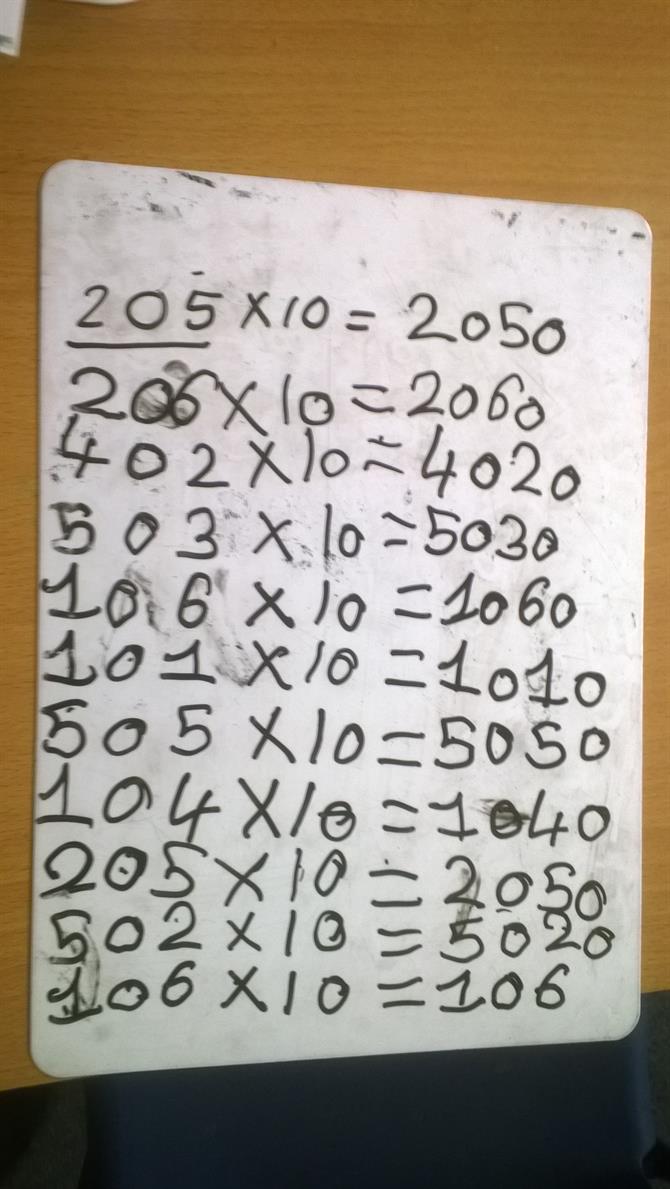 205 × 10 = 2050
206 × 10 = 2060
402 × 10 = 4020
503 × 10 = 5030
106 × 10 = 1060
101 × 10 = 1010
505 × 10 = 5050
104 × 10 = 1040
205 × 10 = 2050
502 × 10 = 5020
106 × 10 = 106